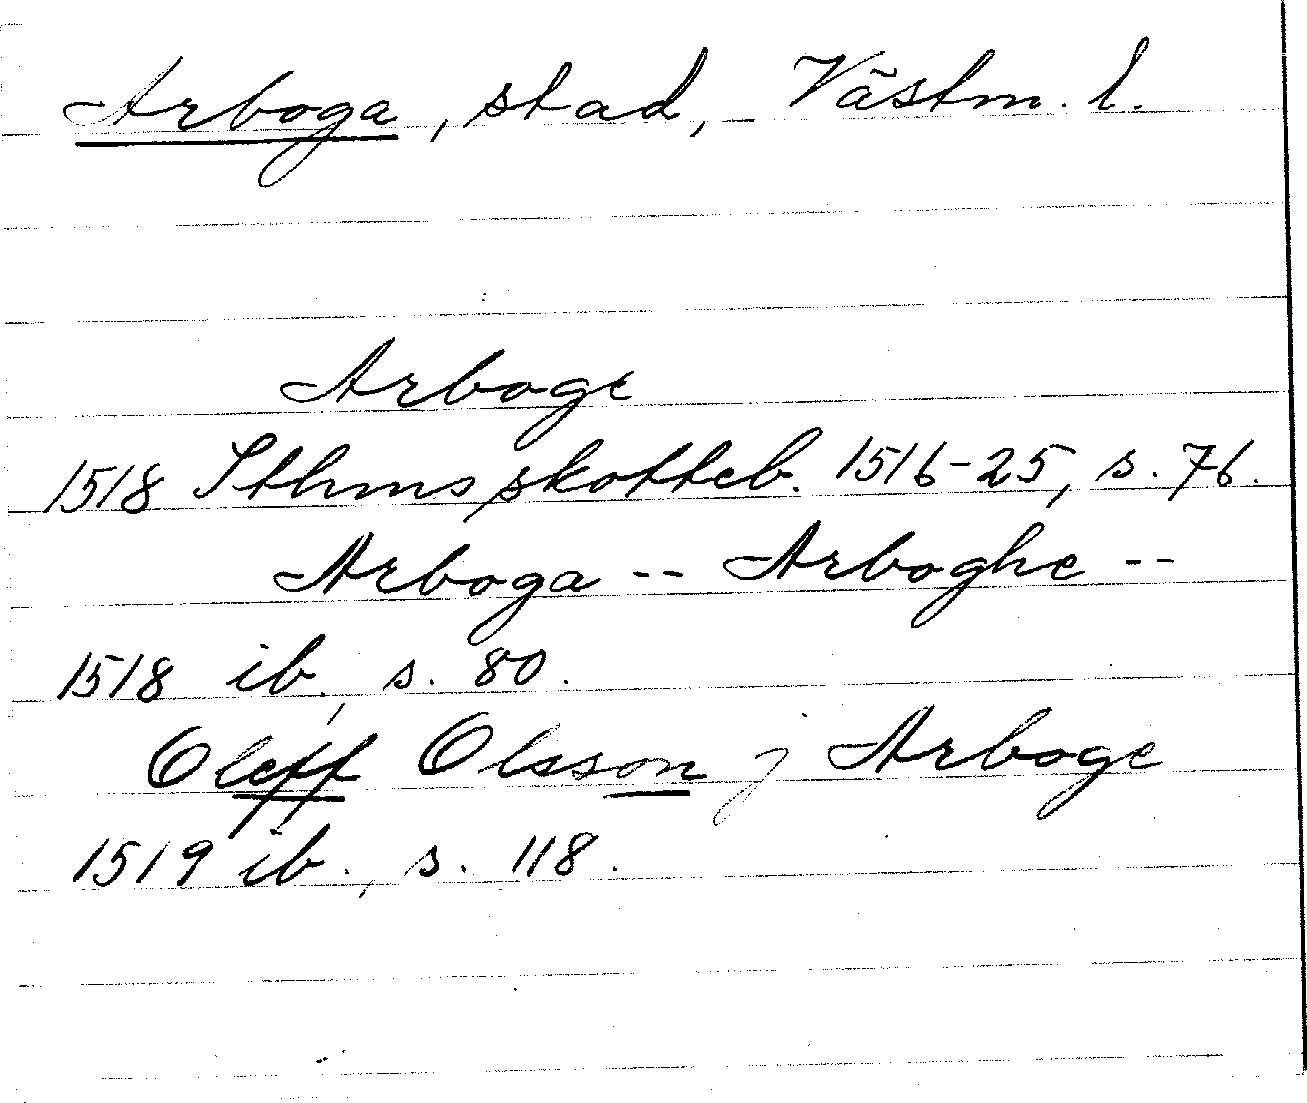 Arboga, stad, - Västm. l.
Arboge
1518 Sthms skotteb. 1516-25, s. 76.
Arboga -- Arboghe --
1518 ib., s. 80.
Oleff Olsson j Arboge
1519 ib., s. 118.